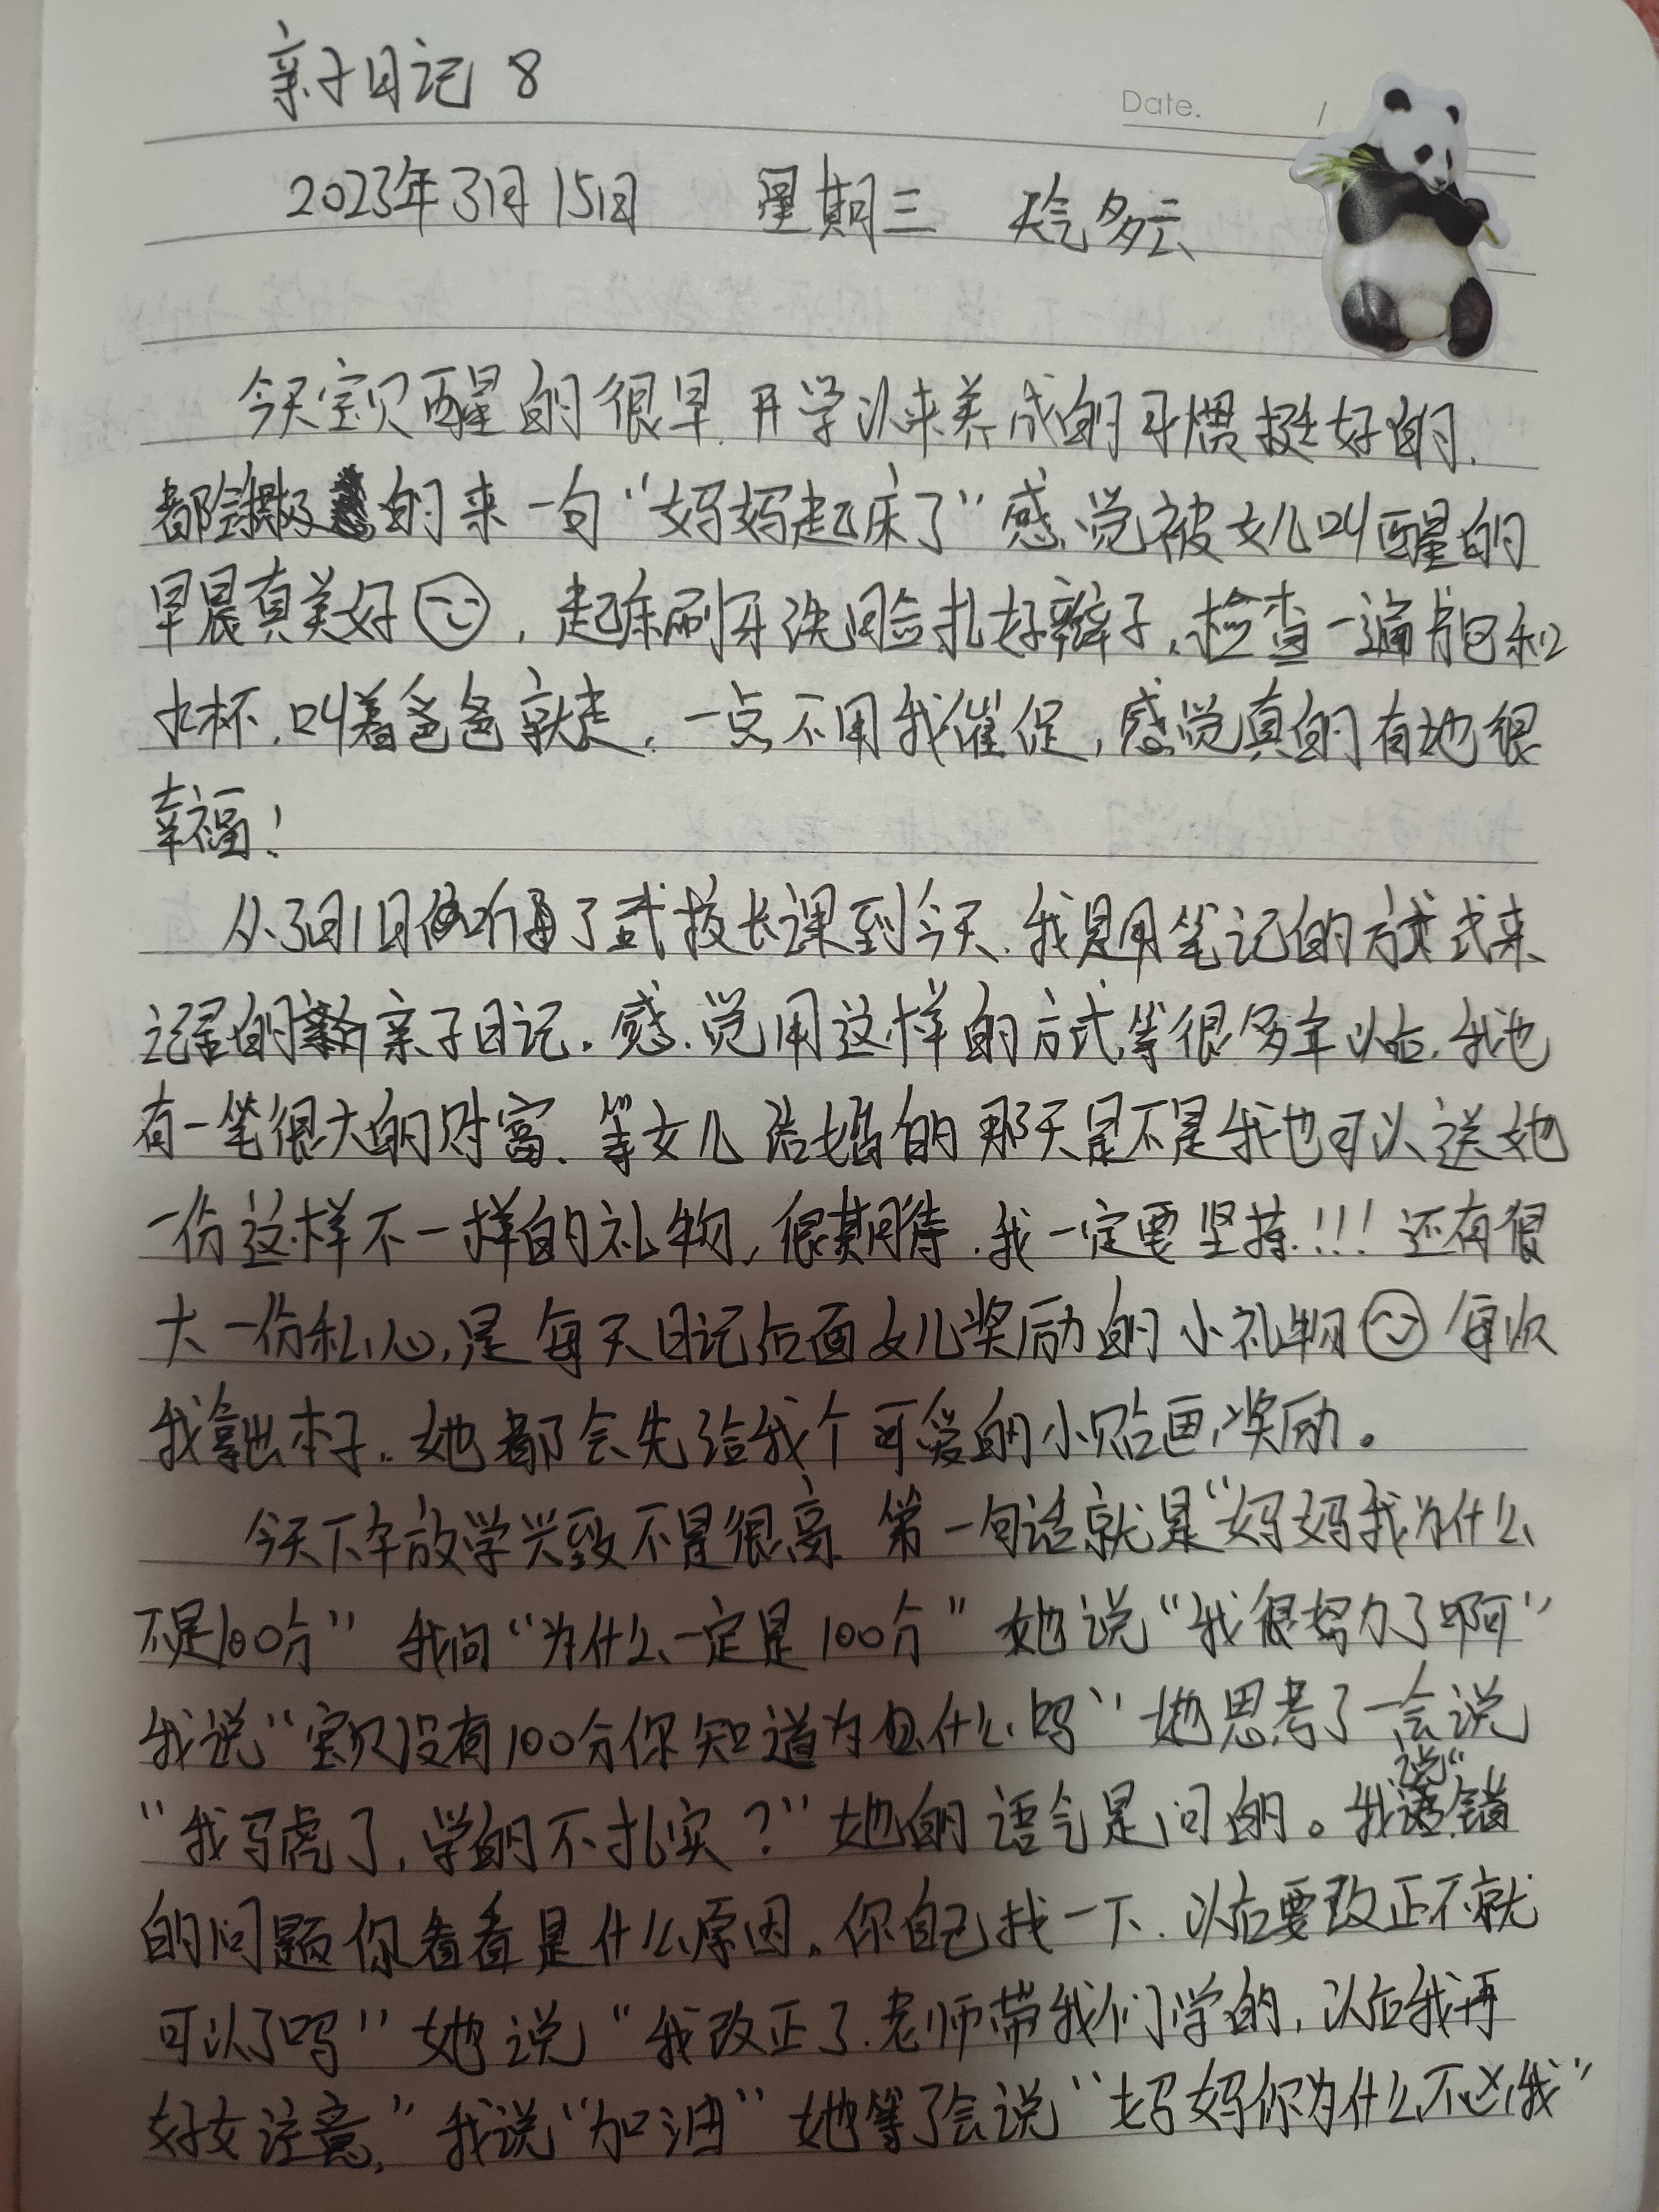 亲子日记 8
Date. /
2023年3月15日 星期三 天气多云
今天宝贝醒的很早.开学以来养成的习惯挺好的.
都会的来一句“妈妈起床了”感觉被女儿叫醒的
早晨真美好，起床刷牙洗脸扎好辫子.检查一遍书包和
水杯.叫着爸爸就走.一点不用我催促,感觉真的有她很
幸福!
从3月1日听了武校长课到今天.我是用笔记的方式来
记录的亲子日记.感觉用这样的方式等很多年以后.我也
有一笔很大的财富.等女儿结婚的那天是不是我也可以送她
一份这样不一样的礼物,很期待.我一定要坚持!!!还有很
大一份私心,是每天日记后面女儿奖励的小礼物 每次
我拿出本子.她都会先给我个可爱的小贴画奖励。
今天下午放学兴致不是很高.第一句话就是“妈妈我为什么
不是100分”我问“为什么一定是100分”她说“我很努力了啊”
我说“宝贝没有100分你知道为什么吗”她思考了一会说
“我马虎了,学的不扎实?”她的语气是问的。我说“错
的问题你看看是什么原因.你自己找一下.以后要改正不就
可以了吗”她说“我改正了.老师带我们学的,以后我再
好好注意.”我说“加油”她等了会说“妈妈你为什么不凶我”